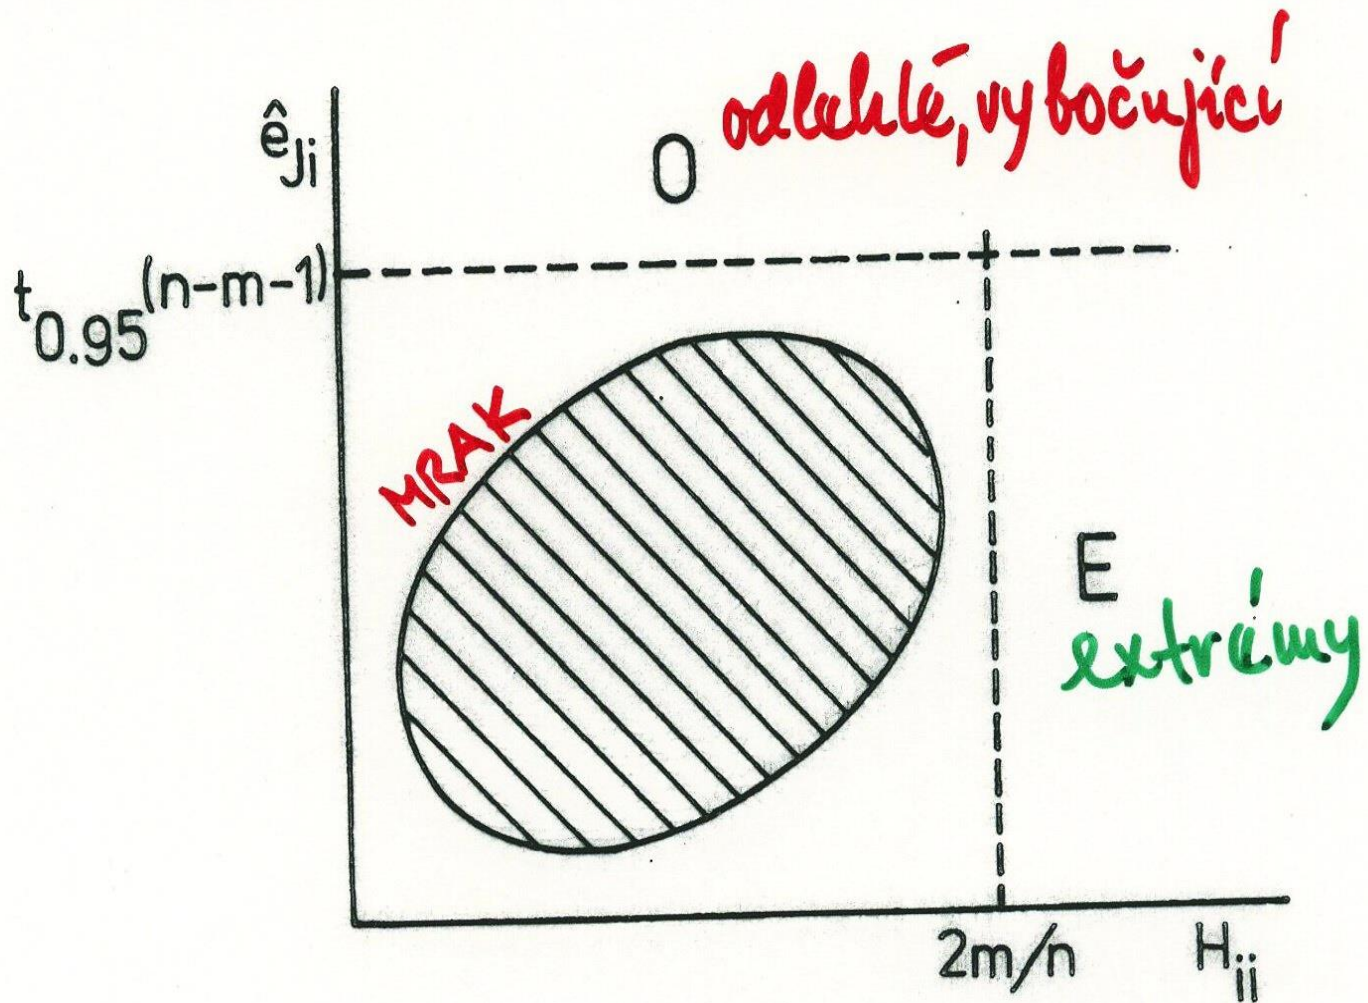 odlehlé, vybočující
ê_Ji
O
t_0.95(n-m-1)
MRAK
E
extrémy
2m/n
H_ii